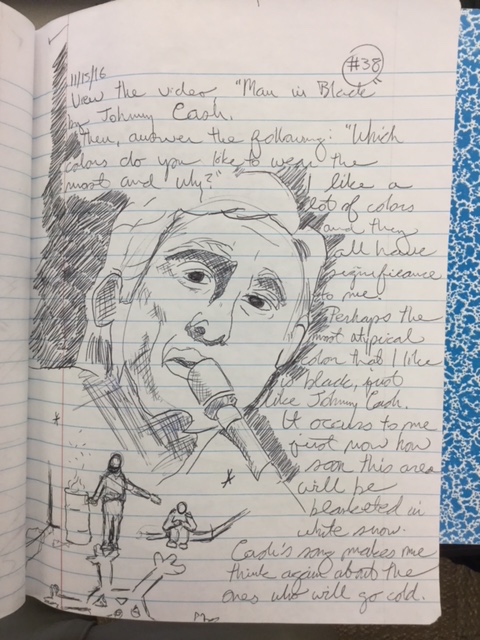 #38
11/15/16
View the video, "Man in Black"
by Johnny Cash.
Then, answer the following: "Which
colors do you like to wear the
most and why?"
I like a
lot of colors
and they
all have
significance
to me.
Perhaps the
most atypical
color that I like
is black, just
like Johnny Cash.
It occurs to me
just now how
soon this area
will be
blanketed in
white snow.
Cash's song makes me
think again about the
ones who will go cold.